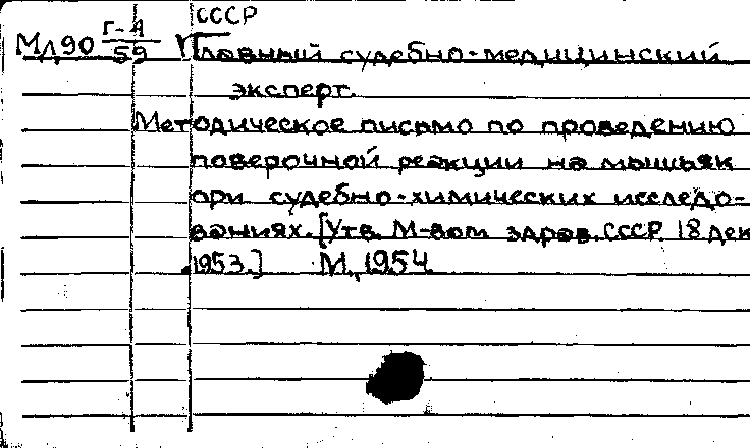 СССР
Мл90 Г-А/59 Главный судебно-медицинский
эксперт.
Методическое письмо по проведению
поверочной реакции на мышьяк
при судебно-химических исследо-
ваниях. [Утв. М-вом здрав. СССР 18 дек
1953.] М., 1954